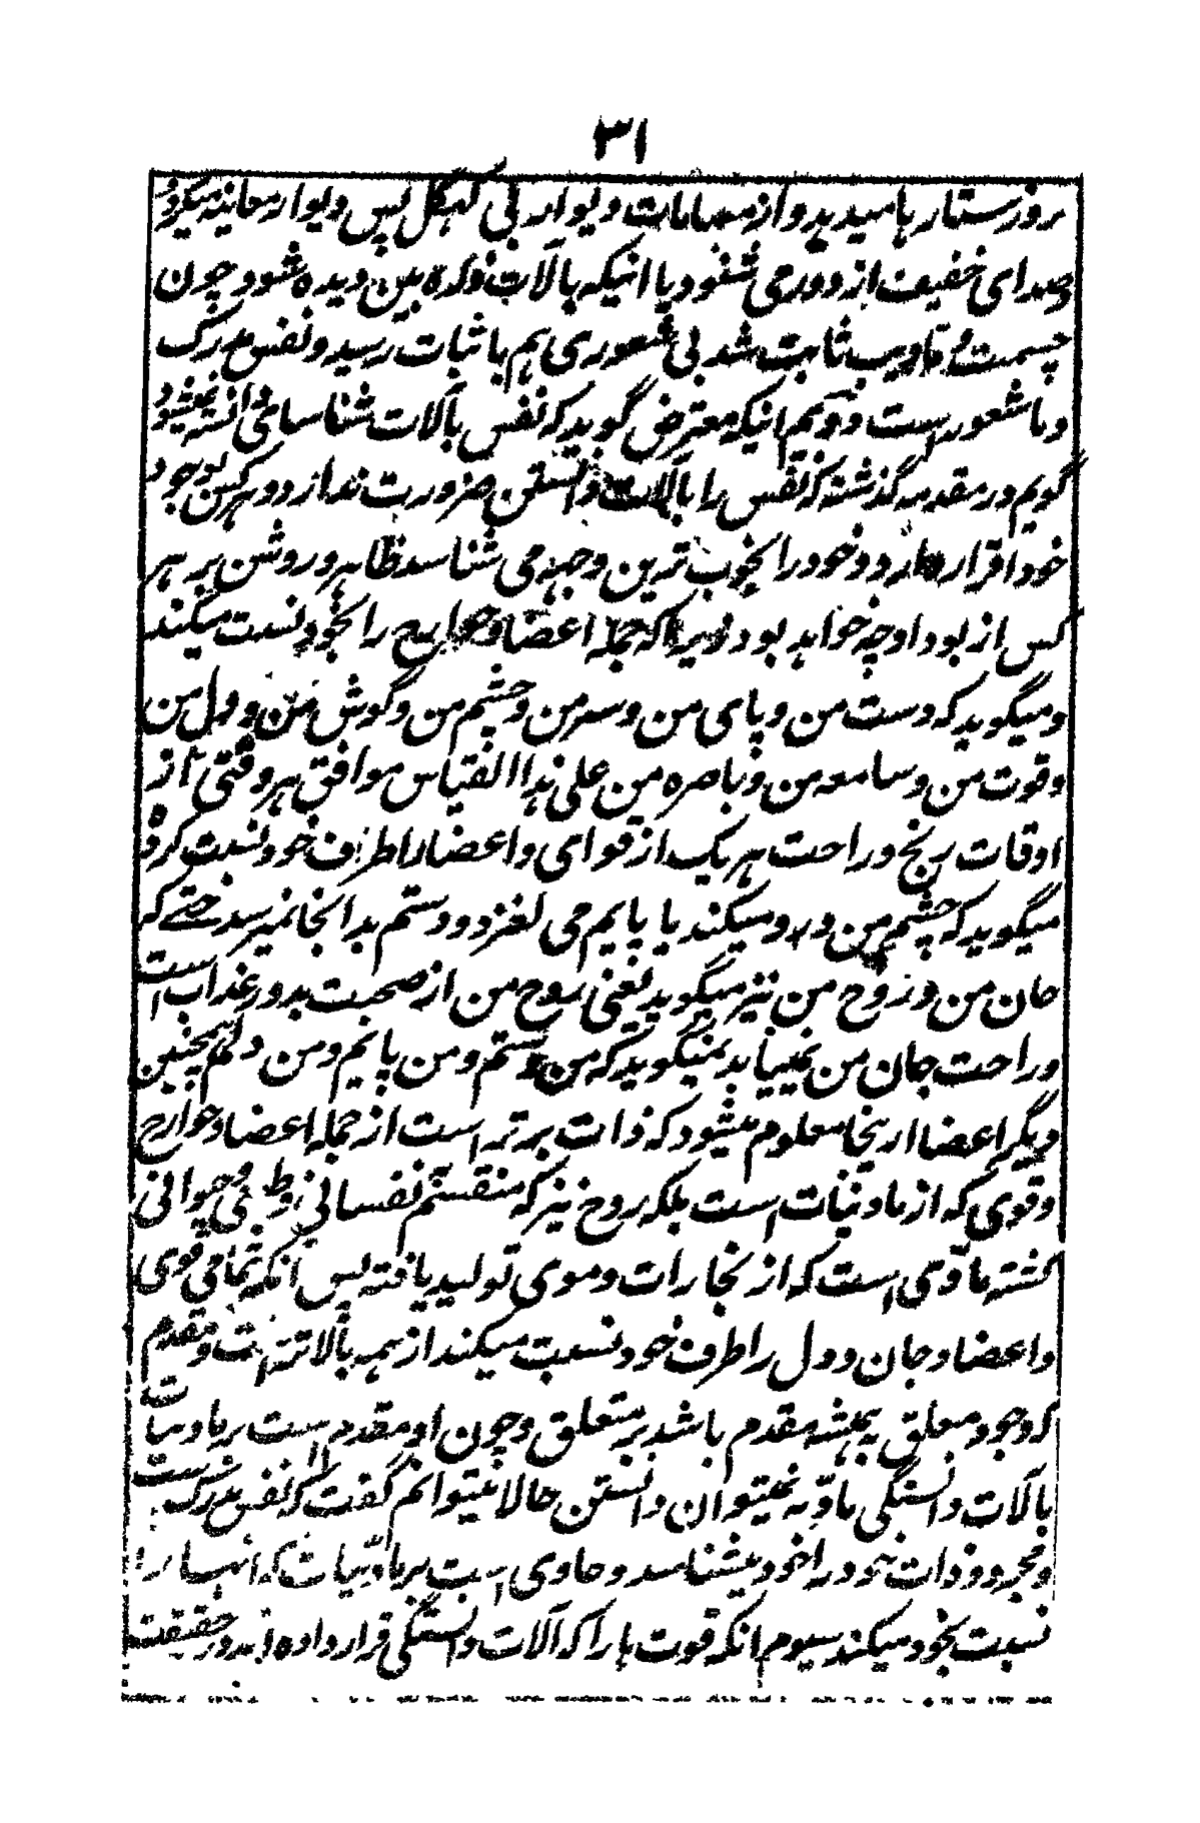 ۳۱
بروز ستارها میدید و از مسامات دیوار بی کهگل پس دیوار معاینه میکرد و
صدای خفیف از دور می شنود یا انیکه بالات ذره بین دیده شود چون
جسمیت و قاویب ثابت شد بی شعوری هم باثبات رسید و نفس مدرک
و باشعور است دویم انیکه معترض گوید که نفس بآلات شناسای دانسته نمیشود
گویم در مقدمه گذشته که نفس را بآلات دانستن ضرورت ندارد و هر کس بوجود
خود اقرار دارد و خود را بخوب ترین وجهه می شناسد ظاهر و روشن بر هر
کس از بود او چه خواهد بود زیرا که جمله اعضا و جوارح را بخود نسبت میکند
و میگوید که دست من و پای من و سر من و چشم من و گوش من و دل من
و قوت من و سامعه من و باصره من علی هذا القیاس موافق هر وقتی از
اوقات رنج و راحت هر یک از قوای و اعضا را طرف خود نسبت کرده
میگوید که چشم من درد میکند یا پایم می لغزد و دستم بدانجا نمیرسد حتے که
جان من و روح من نیز میگوید یعنی روح من از صحبت بد در عذاب است
و راحت جان من نمییابد نمیگوید که من دستم و من پایم و من دلم همچنین
دیگر اعضا ازینجا معلوم میشود که ذات برتر است از جمله اعضا و جوارح
و قوی که از مادیات است بلکه روح نیز که منقسم نفسانی و طبعی و حیوانی
گشته مادّی است که از بخارات دموی تولید یافته پس آنکه تمامی قوی
و اعضا و جان و دل را طرف خود نسبت میکند از همه بالاتر است و مقدم
که وجود معلق به همیشه مقدم باشد بر متعلق و چون او مقدم است بر مادیات
بآلات دانستگی مادّیه نمیتوان دانستن حالا میتوانم گفت که نفس مدرک است
و مجرد و ذات خود را خود میشناسد و حاوی است بر مادّیات که انها را
نسبت بخود میکند سیوم انکه قوت ها را که آلات دانستگی قرار داده اند در حقیقت